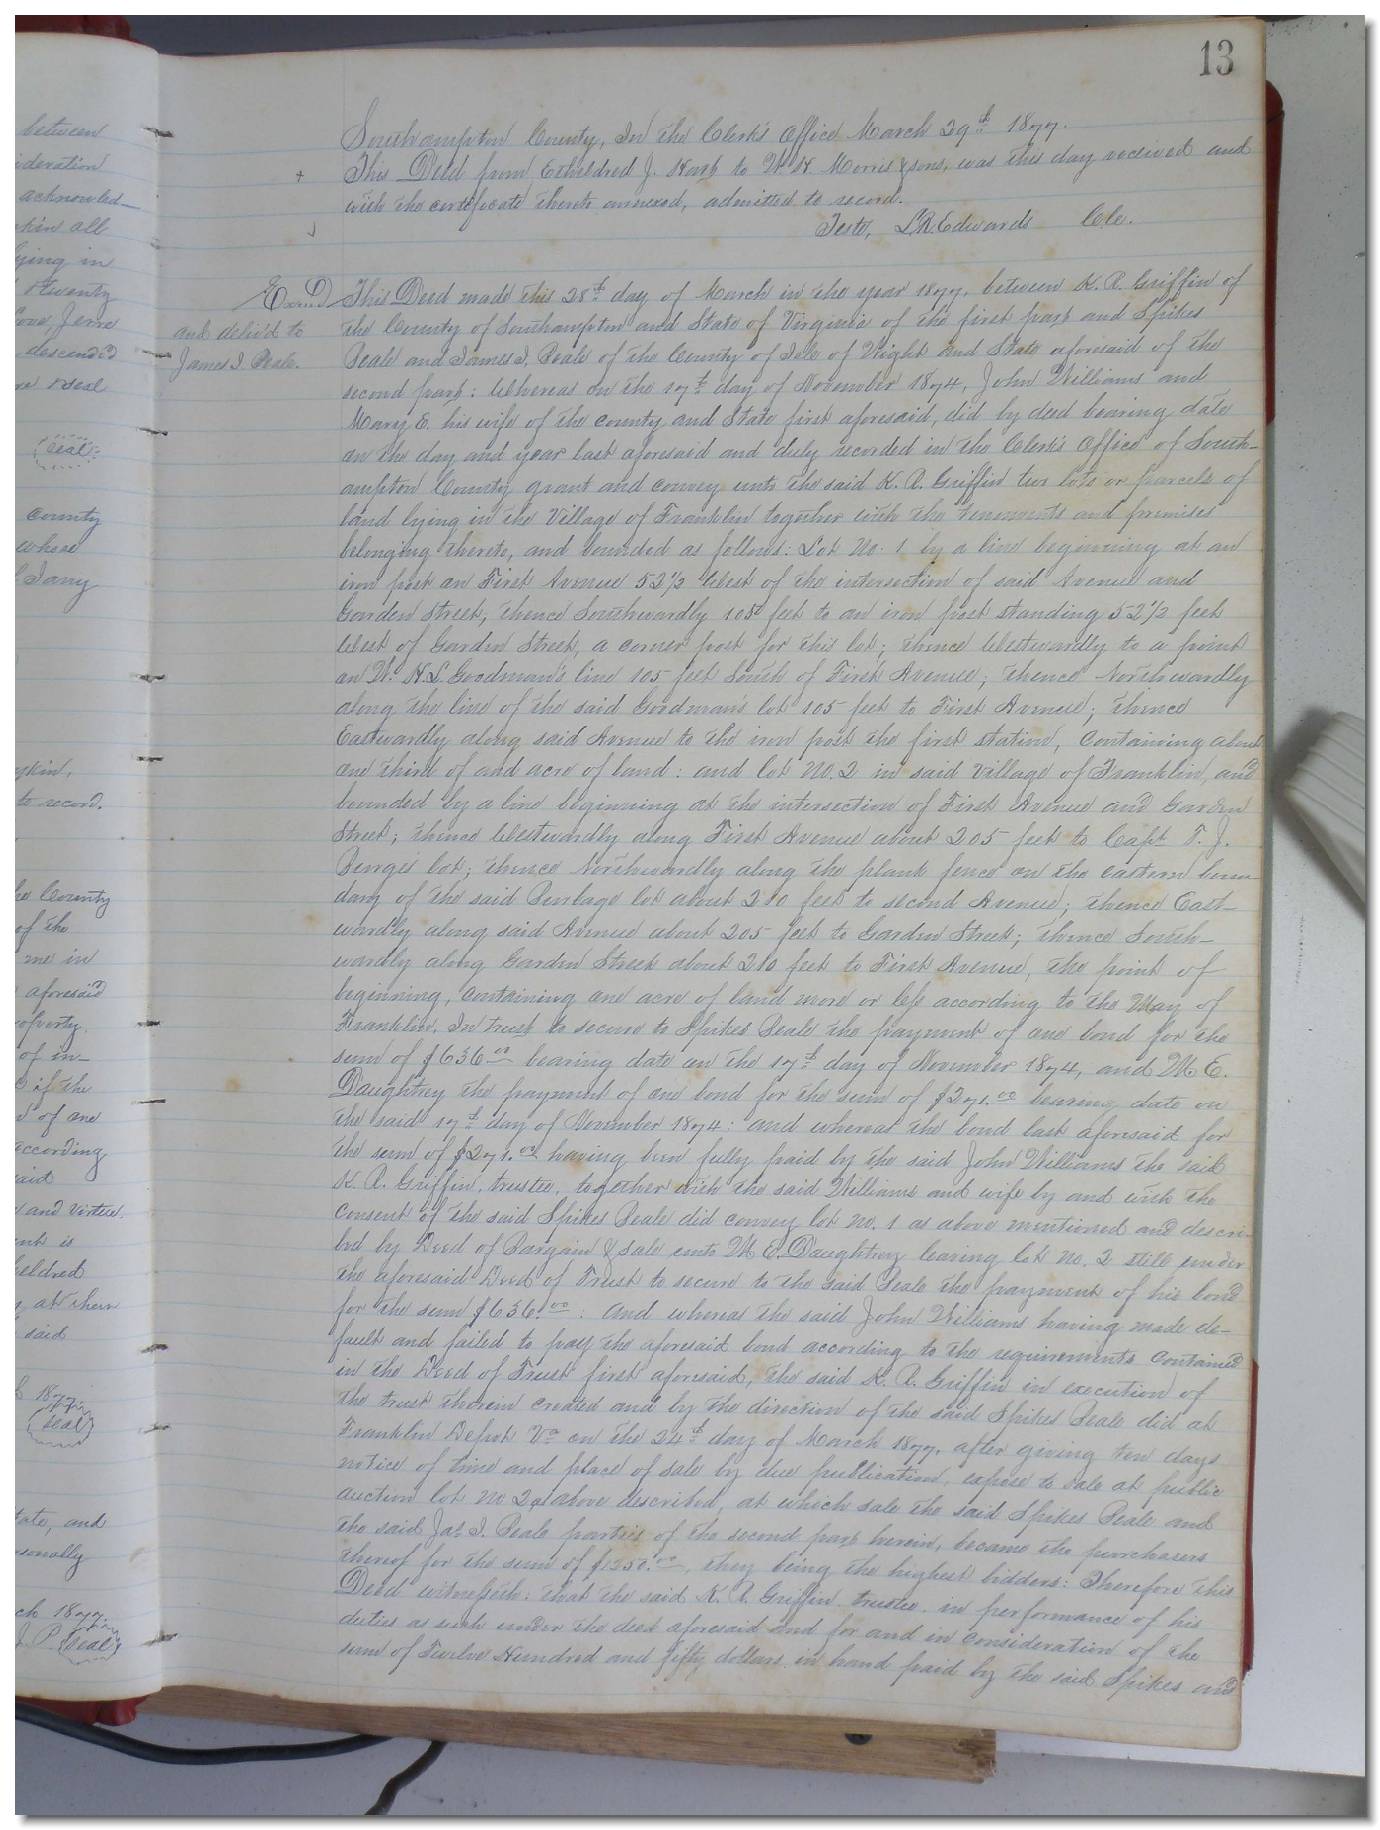 13
between
ideration
acknowled-
kin all
lying in
twenty
Cove, Jerre
descended
re & seal
Seal
county
whose
Jany
kin,
to record.
he County
of the
me in
aforesaid
operty.
of in-
if the
of one
according
said
and virtue.
ent is
heldred
at them
said
1877,
Seal
tate, and
sonally
ch 1877.
J. P. Seal
Southampton County, In the Clerk's Office March 29th 1877.
This Deed from Etheldred J. Harp to W. H. Morris & sons, was this day received and
with the certificate thereto annexed, admitted to record.
Teste, L. R. Edwards C.C.
Exam'd
and deliv'd to
James I. Beale.
This Deed made this 28th day of March in the year 1877, between K. R. Griffin of
the County of Southampton and State of Virginia of the first part and Spikes
Beale and James I. Beale of the County of Isle of Wight and State aforesaid of the
second part: Whereas on the 17th day of November 1874, John Williams and
Mary E. his wife of the county and State first aforesaid, did by deed bearing date
on the day and year last aforesaid and duly recorded in the Clerk's Office of South-
ampton County grant and convey unto the said K. R. Griffin two lots or parcels of
land lying in the Village of Franklin together with the tenements and premises
belonging thereto, and bounded as follows: Lot No. 1 by a line beginning at an
iron post on First Avenue 52½ West of the intersection of said Avenue and
Garden Street, thence Southwardly 105 feet to an iron post standing 52½ feet
West of Garden Street, a corner post for this lot; thence Westwardly to a point
on W. H. L. Goodman's line 105 feet South of First Avenue; thence Northwardly
along the line of the said Goodman's lot 105 feet to First Avenue; thence
Eastwardly along said Avenue to the iron post the first station, Containing about
one third of and acre of land: and lot No. 2 in said village of Franklin, and
bounded by a line beginning at the intersection of First Avenue and Garden
Street; thence Westwardly along First Avenue about 205 feet to Capt. T. J.
lot; thence Northwardly along the plank fence on the eastern boun
dary of the said lot about 210 feet to second Avenue; thence East-
wardly along said Avenue about 205 feet to Garden Street; thence South-
wardly along Garden Street about 210 feet to First Avenue, the point of
beginning, containing one acre of land more or less according to the Map of
Franklin. In trust to secure to Spikes Beale the payment of one bond for the
sum of $636.00 bearing date on the 17th day of November 1874, and M. E.
Daughtrey the payment of one bond for the sum of $271.00 bearing date on
the said 17th day of November 1874: and whereas the bond last aforesaid for
the sum of $271.00 having been fully paid by the said John Williams the said
K. R. Griffin, trustee, together with the said Williams and wife by and with the
consent of the said Spikes Beale did convey lot no. 1 as above mentioned and descri-
bed by Deed of Bargain & sale unto M. E. Daughtrey leaving lot no. 2 still under
the aforesaid Deed of Trust to secure to the said Beale the payment of his bond
for the sum $636.00: And whereas the said John Williams having made de-
fault and failed to pay the aforesaid bond according to the requirements contained
in the Deed of Trust first aforesaid, the said K. R. Griffin in execution of
the trust therein created and by the direction of the said Spikes Beale did at
Franklin Depot Va on the 24th day of March 1877, after giving ten days
notice of time and place of sale by due publication, expose to sale at public
auction lot no 2 above described, at which sale the said Spikes Beale and
the said Jas. I. Beale parties of the second part herein, became the purchasers
thereof for the sum of $1250.00, they being the highest bidders: Therefore this
Deed witnesseth: that the said K. R. Griffin trustee, in performance of his
duties as such under the deed aforesaid and for and in consideration of the
sum of Twelve Hundred and fifty dollars in hand paid by the said Spikes and